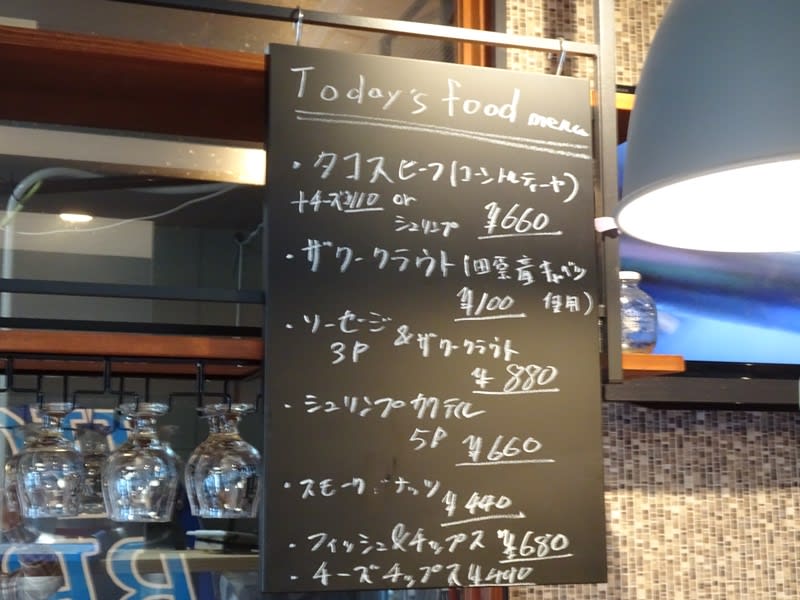 Today's food menu
・タコスビーフ(コーントルティーヤ)
+チーズ¥110 or
シュリンプ ¥660
・ザワークラウト(田原産キャベツ
¥100 使用)
・ソーセージ &ザワークラウト
3P
¥880
・シュリンプカクテル
5P ¥660
・スモークナッツ
¥440
・フィッシュ&チップス ¥680
・チーズチップス ¥440